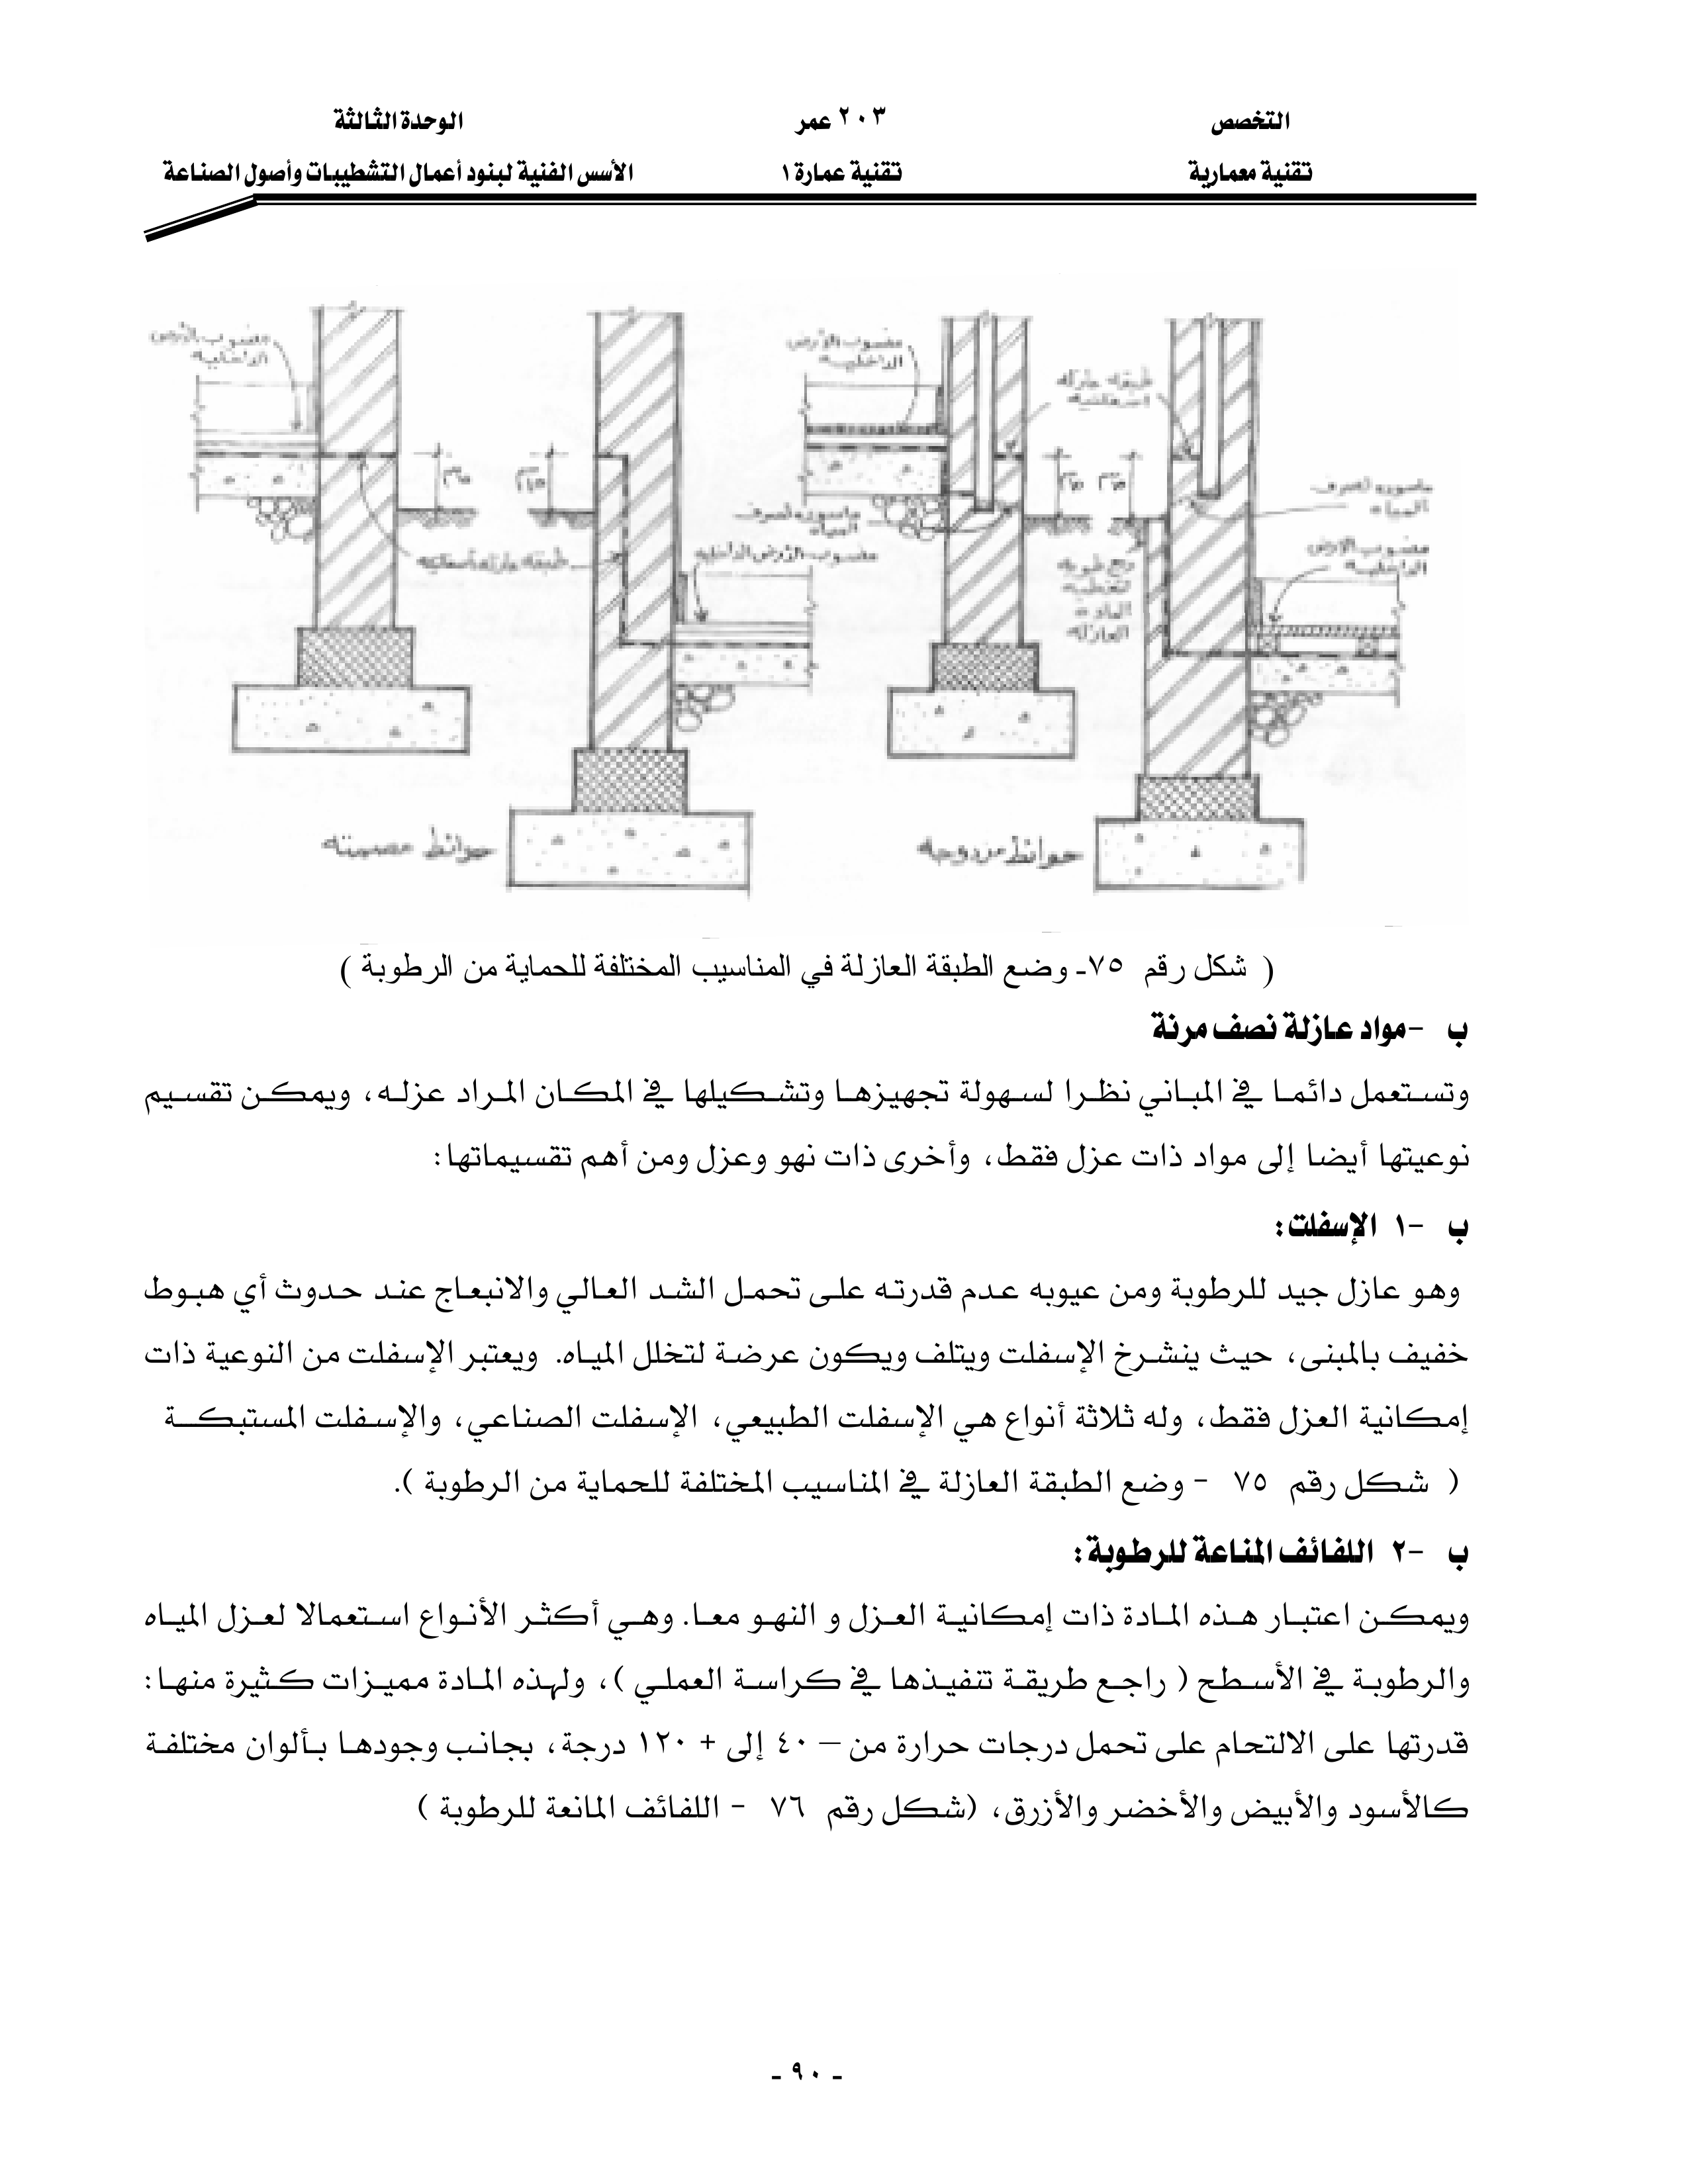 التخصص
٢٠٣ عمر
الوحدة الثالثة
تقنية معمارية
تقنية عمارة ١
الأسس الفنية لبنود أعمال التشطيبات وأصول الصناعة
منسوب الأرض
الداخلية
منسوب الأرض
الداخلية
طبقة عازلة
اسفلتية
ماسورة لصرف
المياه
ماسورة لصرف
المياه
منسوب الأرض الداخلية
منسوب الأرض
الداخلية
طبقة عازلة أسفلتية
لتغطية
المادة
العازلة
حوائط مصمتة
حوائط مزدوجة
( شكل رقم ٧٥- وضع الطبقة العازلة في المناسيب المختلفة للحماية من الرطوبة )
ب -مواد عازلة نصف مرنة
وتستعمل دائما في المباني نظرا لسهولة تجهيزها وتشكيلها في المكان المراد عزله، ويمكن تقسيم
نوعيتها أيضا إلى مواد ذات عزل فقط، وأخرى ذات نهو وعزل ومن أهم تقسيماتها:
ب -١ الإسفلت:
وهو عازل جيد للرطوبة ومن عيوبه عدم قدرته على تحمل الشد العالي والانبعاج عند حدوث أي هبوط
خفيف بالمبنى، حيث ينشرخ الإسفلت ويتلف ويكون عرضة لتخلل المياه. ويعتبر الإسفلت من النوعية ذات
إمكانية العزل فقط، وله ثلاثة أنواع هي الإسفلت الطبيعي، الإسفلت الصناعي، والإسفلت المستبكة
( شكل رقم ٧٥ - وضع الطبقة العازلة في المناسيب المختلفة للحماية من الرطوبة ).
ب -٢ اللفائف المناعة للرطوبة:
ويمكن اعتبار هذه المادة ذات إمكانية العزل و النهو معا. وهي أكثر الأنواع استعمالا لعزل المياه
والرطوبة في الأسطح ( راجع طريقة تنفيذها في كراسة العملي )، ولهذه المادة مميزات كثيرة منها:
قدرتها على الالتحام على تحمل درجات حرارة من – ٤٠ إلى + ١٢٠ درجة، بجانب وجودها بألوان مختلفة
كالأسود والأبيض والأخضر والأزرق، (شكل رقم ٧٦ - اللفائف المانعة للرطوبة )
- ٩٠ -